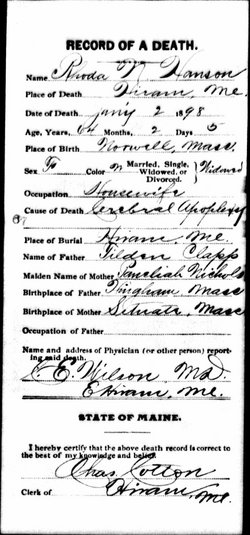 RECORD OF A DEATH.
Name Rhoda N. Hanson
Place of Death Hiram, Me.
Date of Death Jan'y 2 1898
Age, Years, 64 Months, 2 Days 5
Place of Birth Norwell, Mass.
Sex F Color W Married, Single, Widowed, or Divorced. Widowed
Occupation Housewife
Cause of Death Cerebral Apoplexy
Place of Burial Hiram, Me.
Name of Father Tilden Clapp
Maiden Name of Mother Nichols
Birthplace of Father Hingham Mass
Birthplace of Mother Situate, Mass
Occupation of Father
Name and address of Physician (or other person) report-
ing said death.
E. Wilson M.D.
E Hiram, Me.
STATE OF MAINE.
I hereby certify that the above death record is correct to
the best of my knowledge and belief.
Chas Cotton
Clerk of Hiram, Me.